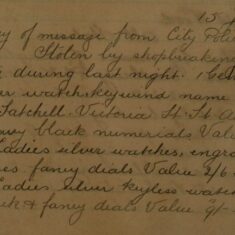 15
y of message from City Poli
Stolen by shopbreaking
during last night. 1 Gen
er watch keywind name
Fatchell. Victoria St. St A
avy black numerals Valu
Ladies silver watches, engra
es. fancy dials Value 2/6
Ladies silver keyless watch
& fancy dials Value 9/-